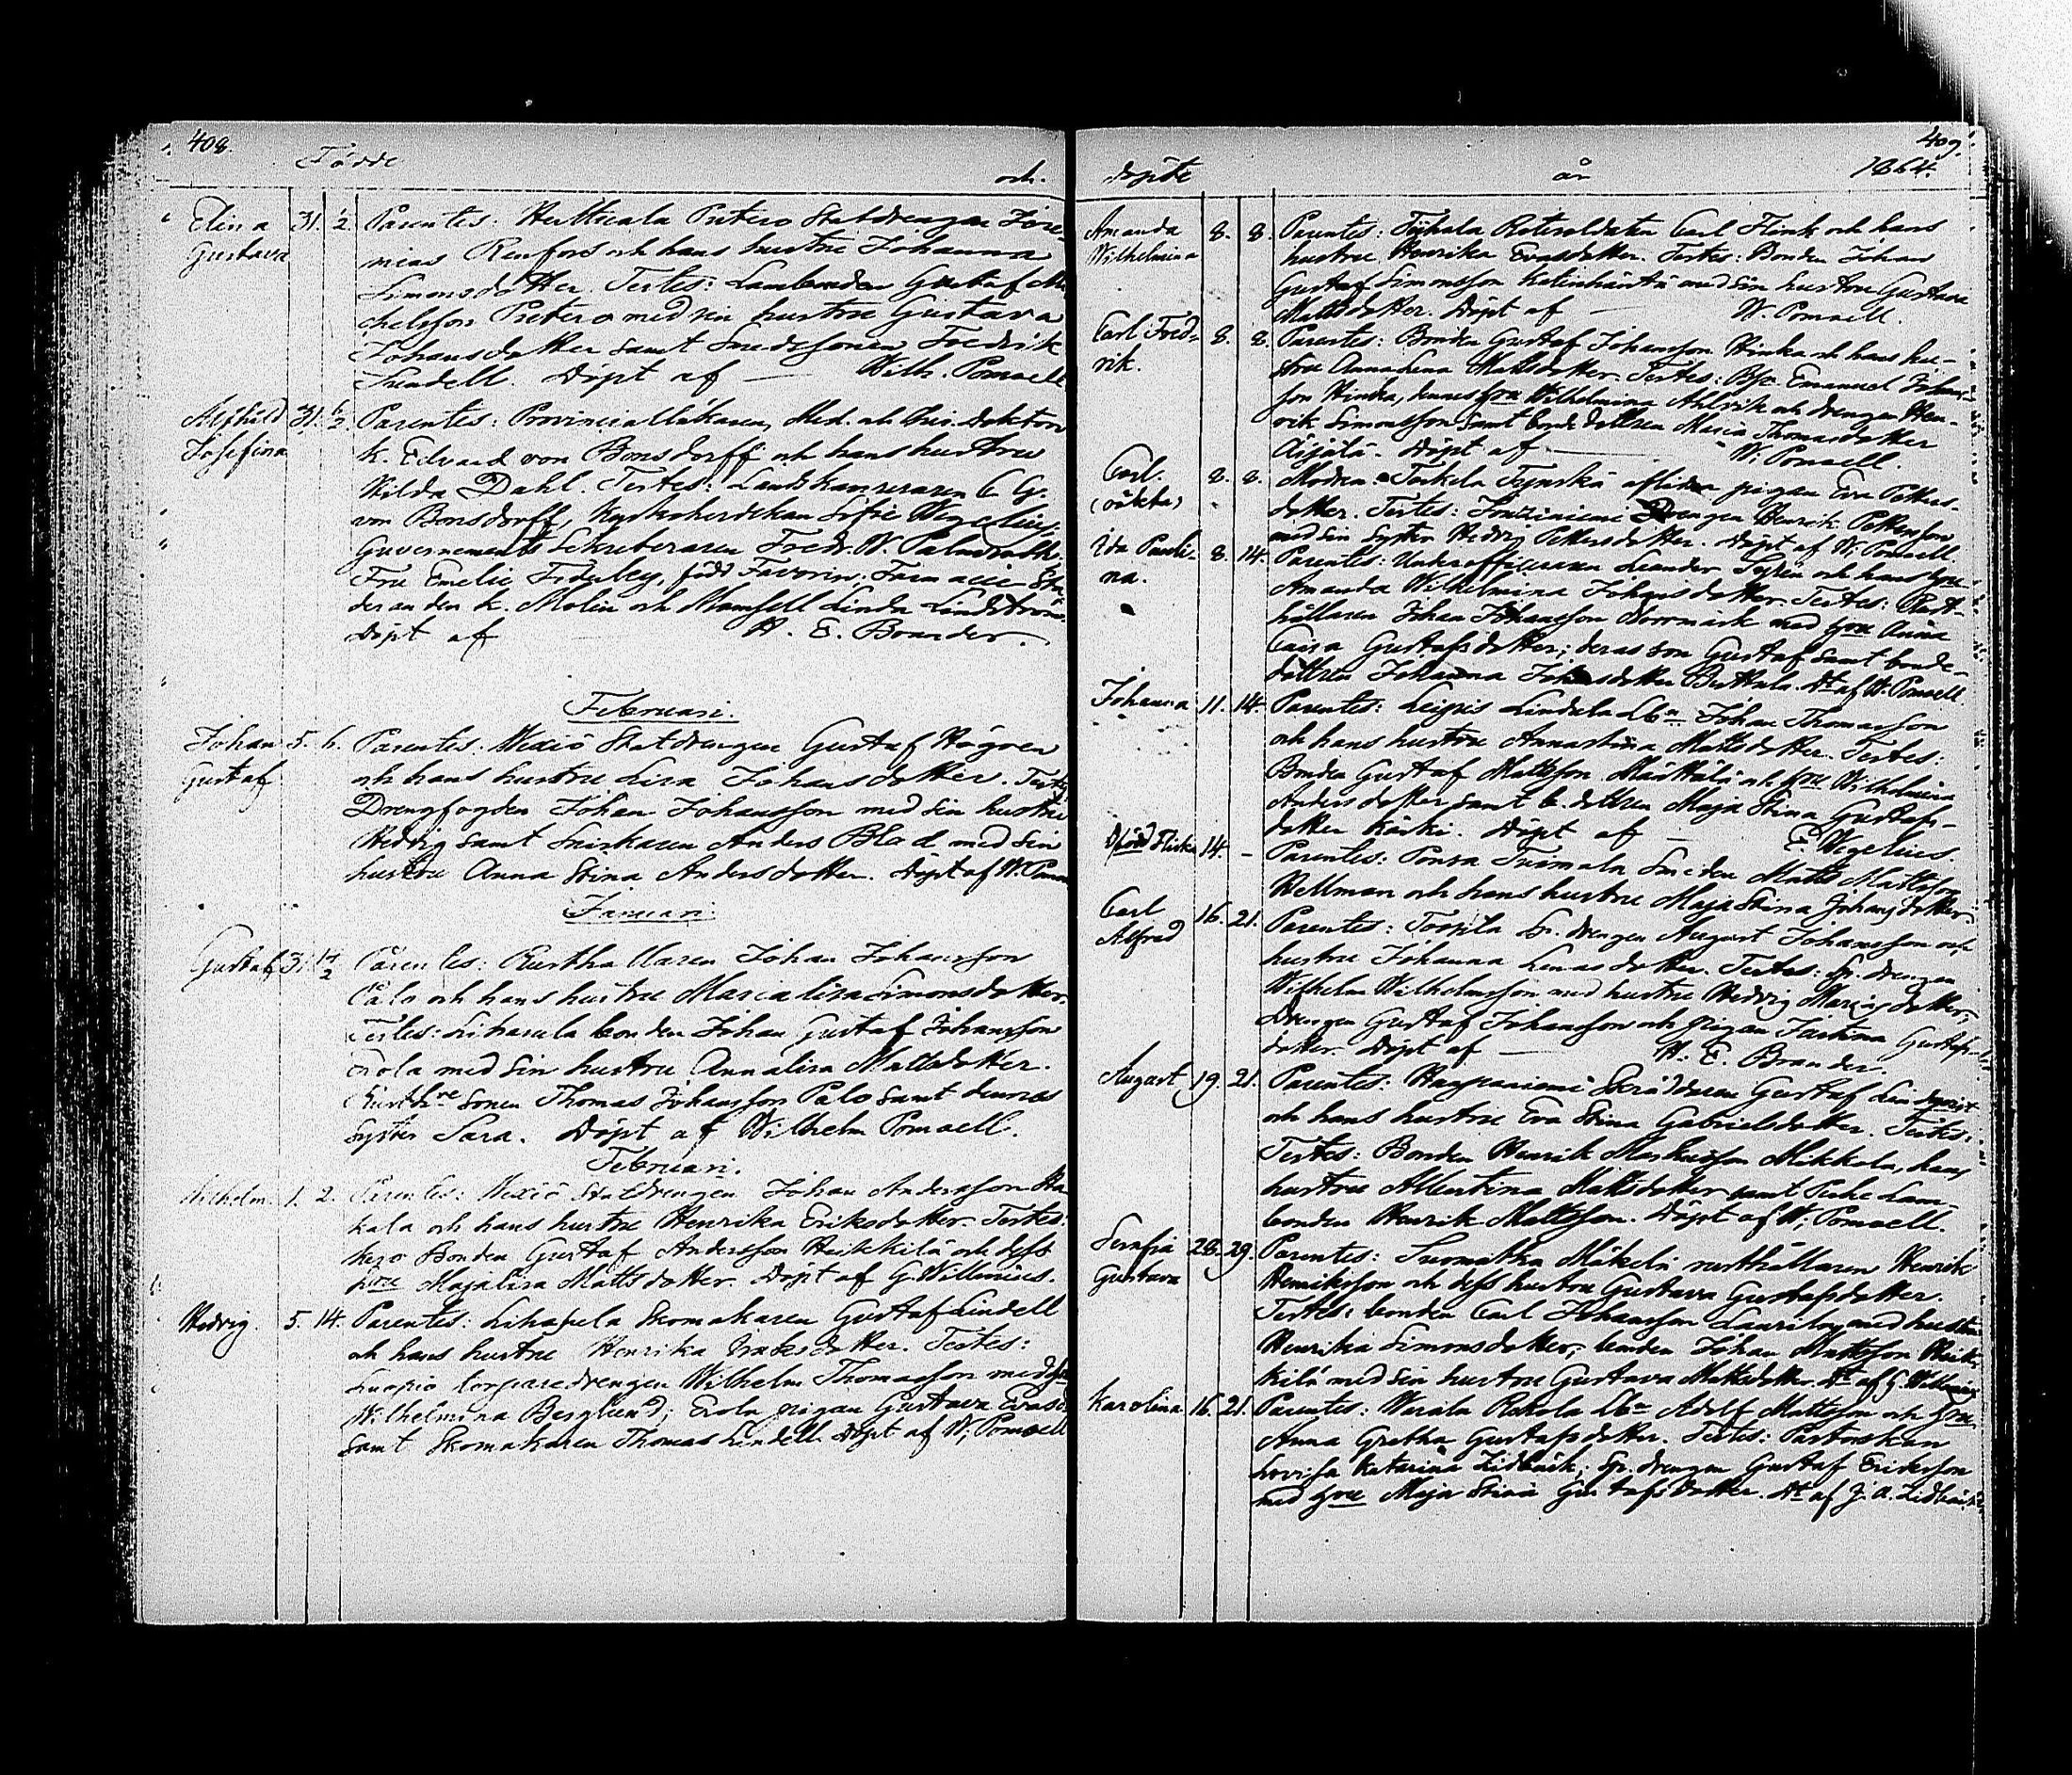 408.
Födde och
Elina 31. 1/2 Parentes: Huttuala Pietero Statdrengen Jere-
Gustava mias Renfors och hans hustru Johanna
Simonsdotter. Testes: Lambonden Gustaf Mi-
chelsson Pietero med sin hustru Gustava
Johansdotter samt Smedssonen Fredrik
Lundell. Döpt af — Wilh. Pomoell
Alfhild 31. 6/2 Parentes: Provincialläkaren, Med. och Chir. Doktorn
Josefina K. Edvard von Bonsdorff och hans hustru
Hilda Dahl. Testes: Landskamreraren C. G.
von Bonsdorff, Kyrkoherdskan Sofie Wegelius,
Guvernements Sekreteraren Fredr. W. Palmroth
Fru Emelie Federley, född Favorin; Farmacie Stu-
deranden K. Molin och Mamsell Linda Lindström.
Döpt af H. E. Brander.
Februari.
Johan 5. 6. Parentes: Wexiö Statdrengen Gustaf Högren
Gustaf och hans hustru Lisa Johansdotter. Testes
Drengfogden Johan Johansson med sin hustru
Hedvig samt Snickaren Anders Blad med sin
hustru Anna Stina Andersdotter. Döpt af W. Pomoell
Januari
Gustaf 31. 14/2 Parentes: Rusthållaren Johan Johansson
Palo och hans hustru Maria Lisa Simonsdotter.
Testes: Lihasula bonden Johan Gustaf Johansson
Erola med sin hustru Annalisa Mattsdotter.
Rusth.re sonen Thomas Johansson Palo samt dennes
syster Sara. Döpt af Wilhelm Pomoell.
Februari.
Wilhelm. 1. 2. Parentes: Wexiö Statdrengen Johan Andersson Ha-
kala och hans hustru Henrika Eriksdotter. Testes:
Kero Bonden Gustaf Andersson Heikkilä och dess
hru Majalisa Mattsdotter. Döpt af G. Willenius.
Hedvig. 5. 14. Parentes: Lihasula Skomakaren Gustaf Lindell
och hans hustru Henrika Eriksdotter. Testes:
Suopio torparedrengen Wilhelm Thomasson med hru
Wilhelmina Berglund; Erola pigan Gustava Evasd.
samt Skomakaren Thomas Lindell. Döpt af W; Pomoell
409.
döpte år 1864.
Amanda 8. 8. Parentes: Tykola Rotesoldaten Carl Flink och hans
Wilhelmina hustru Henrika Evasdotter. Testes: Bonden Johan
Gustaf Simonsson Ketunhäntä med sin hustru Gustava
Mattsdotter. Döpt af — W. Pomoell.
Carl Fred- 8. 8 Parentes: Bonden Gustaf Johansson Hinka och hans hu-
rik. stru Anna Lena Mattsdotter. Testes: Emanuel Johans-
son Hinka, dennes hru Wilhelmina Ahlrik och drengen Hen-
rik Simonsson samt bondedottren Maria Thomasdotter
Äijälä. Döpt af — W; Pomoell.
Carl. 8. 8. Modren Torkela Tynskä aflidna pigan Eva Petters-
(oäkta) dotter. Testes: Drengen Henrik Pettersson
med sin syster Hedvig Pettersdotter. Döpt af W; Pomoell.
Ida Pauli- 8. 14. Parentes: Underofficeraren Leander och hans hru
na. Amanda Wilhelmina Johansdotter. Testes: Rust-
hållaren Johan Johansson Norrmark med hru Anna
Caisa Gustafsdotter; deras son Gustaf samt bonde-
dottren Johanna Johansdotter Perttula. Dt af W. Pomoell.
Johanna 11. 14. Parentes: Leipis Lindula Lbn Johan Thomasson
och hans hustru Annastina Mattsdotter. Testes:
Bonden Gustaf Mattsson Märttälä och hru Wilhelmina
Andersdotter samt b. dottren Maja Stina Gustafs-
dotter Kärki. Döpt af — E Wegelius.
Dfödd Flicka 14. – Parentes: Ponsa Tuomala Smeden Matts Mattsson
Wellman och hans hustru Maja Stina Johansdotter.
Carl 16. 21. Parentes: Toopila Sp. drengen August Johansson och
Alfred hustru Johanna Lenasdotter. Testes: Sp. drengen
Wilhelm Wilhelmsson med hustru Hedvig Mariasdotter;
Drengen Gustaf Johansson och pigan Justina Gustafs-
dotter. Döpt af — H. E. Brander.
August 19. 21. Parentes: Haapaniemi Skräddaren Gustaf Lindqvist
och hans hustru Eva Stina Gabrielsdotter. Testes:
Testes: Bonden Henrik Markusson Mikkola, hans
hustru Albertina Mattsdotter samt Lam-
bonden Henrik Mattsson. Döpt af W; Pomoell.
Serafia 28. 29. Parentes: Suomatka Mäkelä rusthållaren Henrik
Gustava Henriksson och dess hustru Gustava Gustafsdotter.
Testes: bonden Carl Johansson Laurila med hustru
Henrika Simonsdotter, bonden Johan Mattsson Heik-
kilä med sin hustru Gustava Mattsdotter. Dt af G. Willenius
Karolina 16. 21. Parentes: Warala Rekola Lbn Adolf Mattsson och hru
Anna Gretha Gustafsdotter. Testes: Pastorskan
Lovisa Katarina Lidbäck; Sp. drengen Gustaf Eriksson
med hru Maja Stina Gustafsdotter. Dt af J. A. Lidbäck.